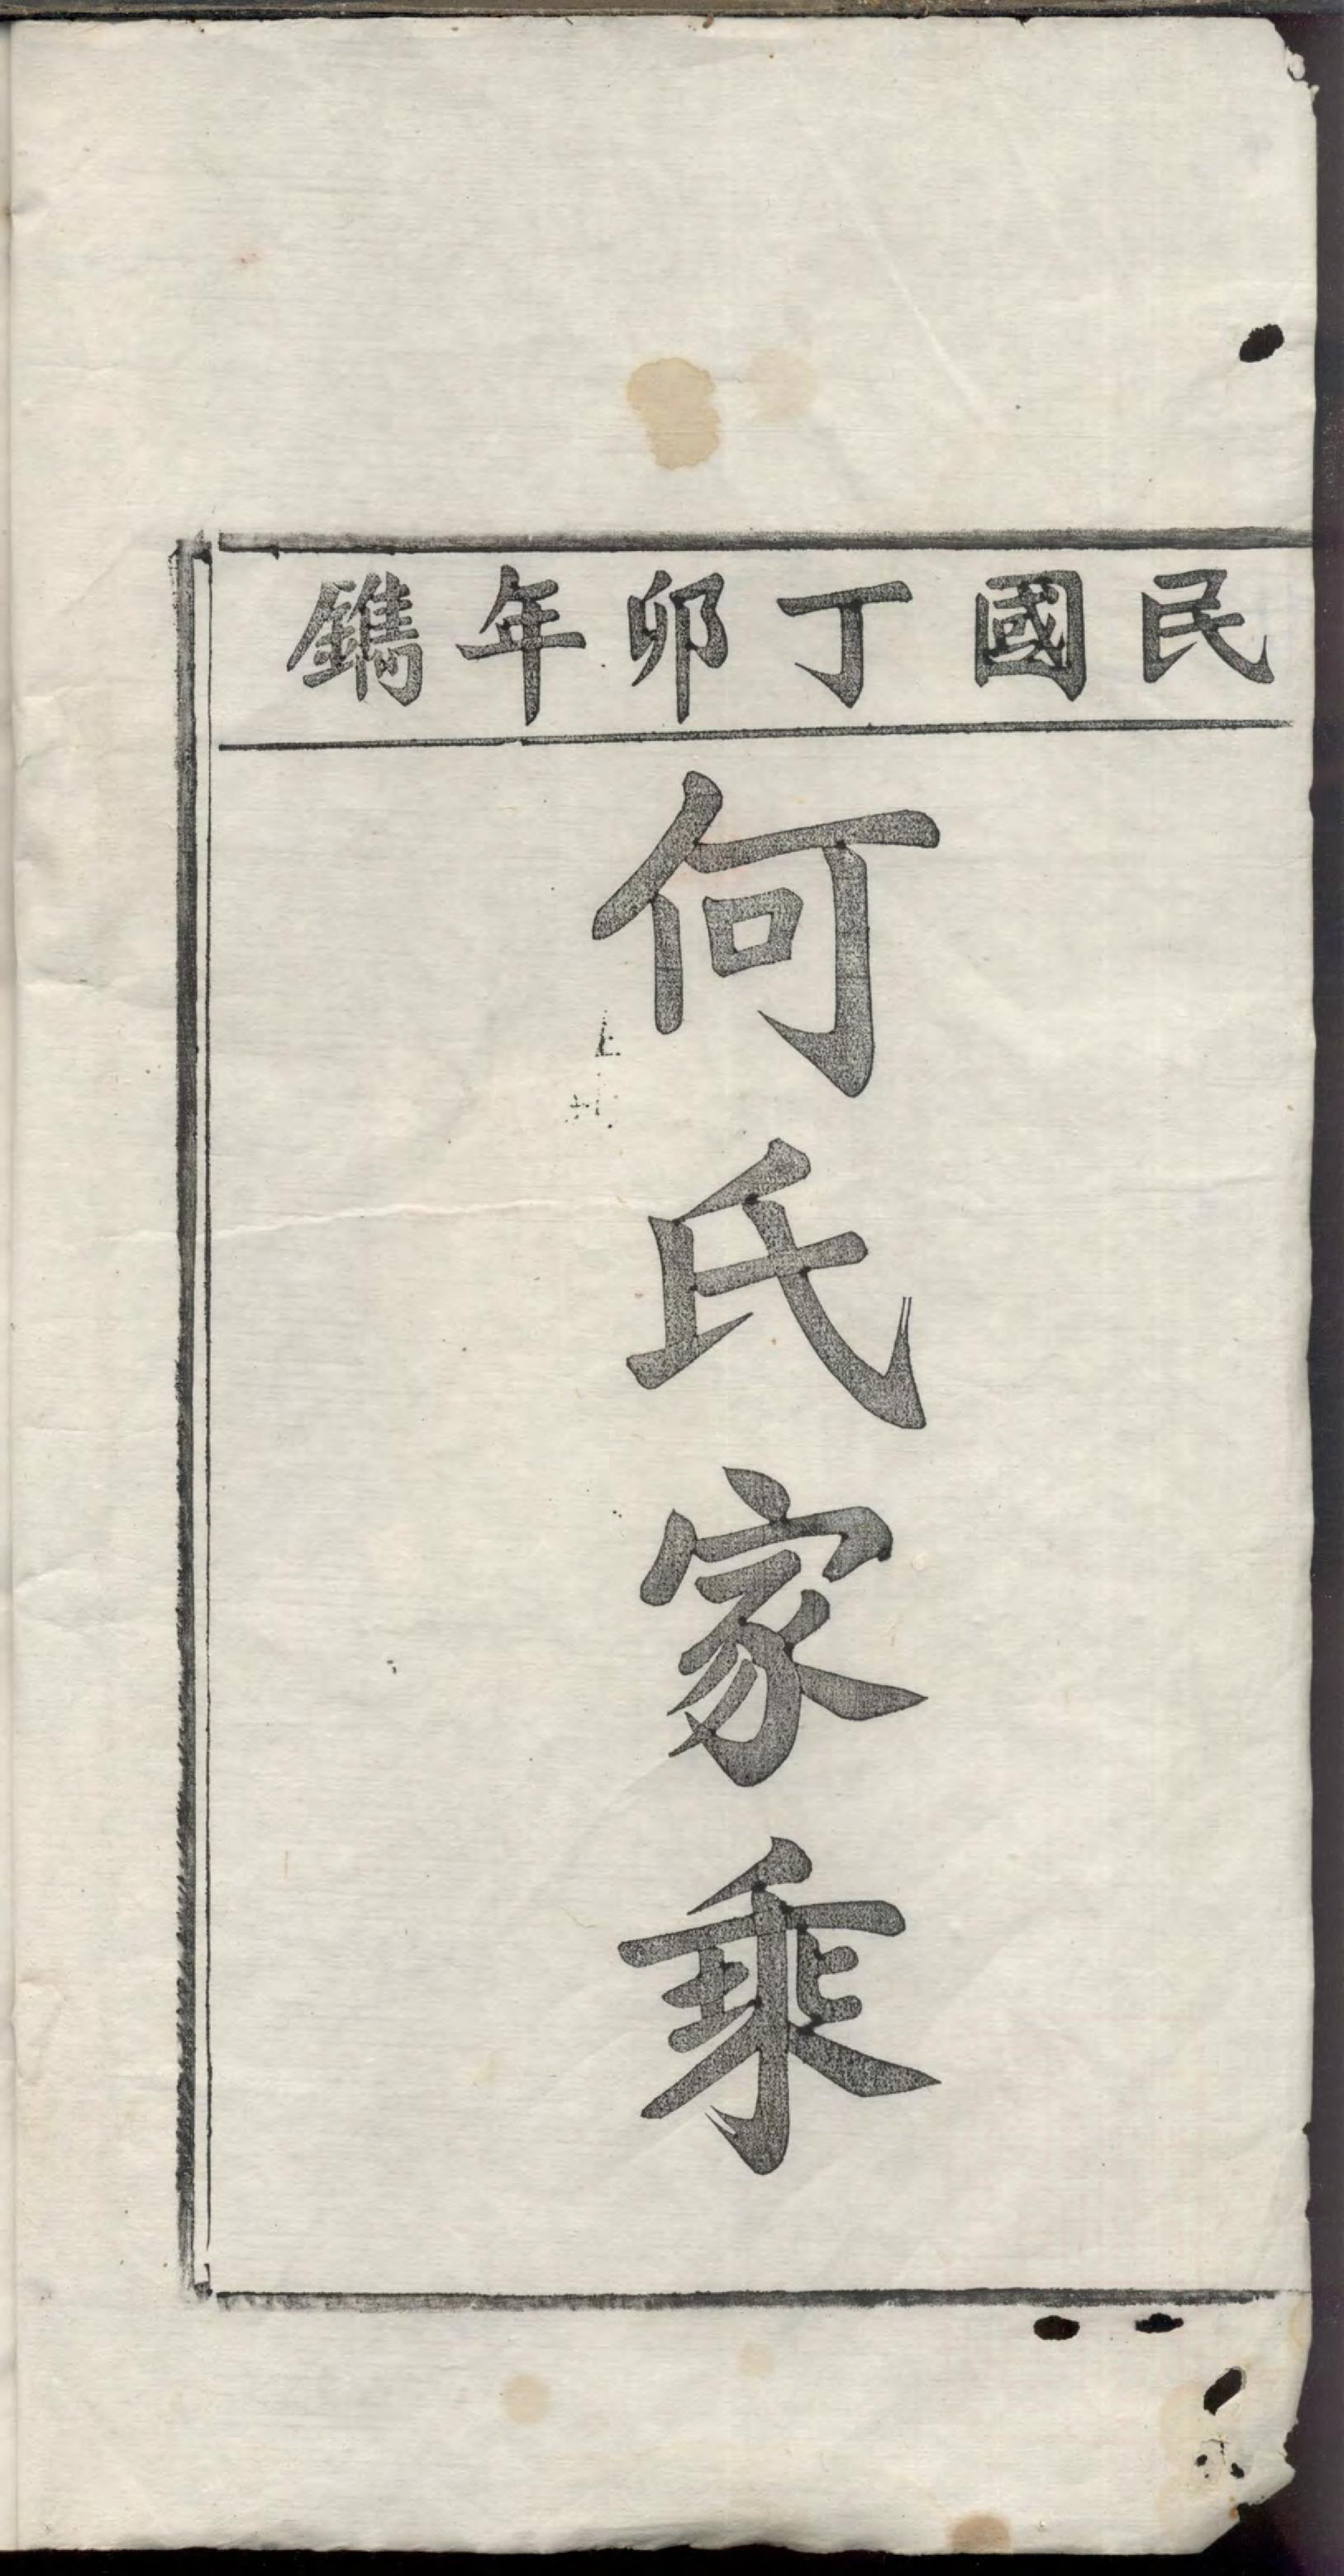 民國丁卯年鐫
何氏家乘